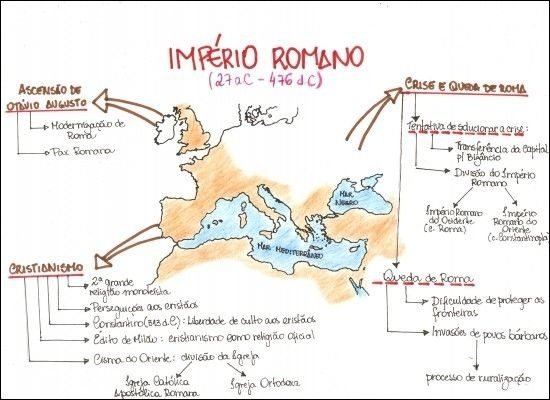 IMPÉRIO ROMANO
(27 a.C - 476 d.C)
ASCENSÃO DE
OTÁVIO AUGUSTO
Modernização de
Roma
Pax Romana
CRISTIANISMO
2ª grande
religião monoteísta
Perseguições aos cristãos
Constantino (313 d.C): Liberdade de culto aos cristãos
Édito de Milão: cristianismo como religião oficial
Cisma do Oriente: divisão da Igreja
Igreja Católica
Apostólica Romana
Igreja Ortodoxa
MAR
NEGRO
MAR MEDITERRÂNEO
CRISE E QUEDA DE ROMA
Tentativa de solucionar a crise:
Transferência da Capital
p/ Bizâncio
Divisão do Império
Romano
Império Romano
do Ocidente
(c. Roma)
Império
Romano do
Oriente
(c. Constantinopla)
Queda de Roma
Dificuldade de proteger as
fronteiras
Invasões de povos bárbaros
processo de ruralização